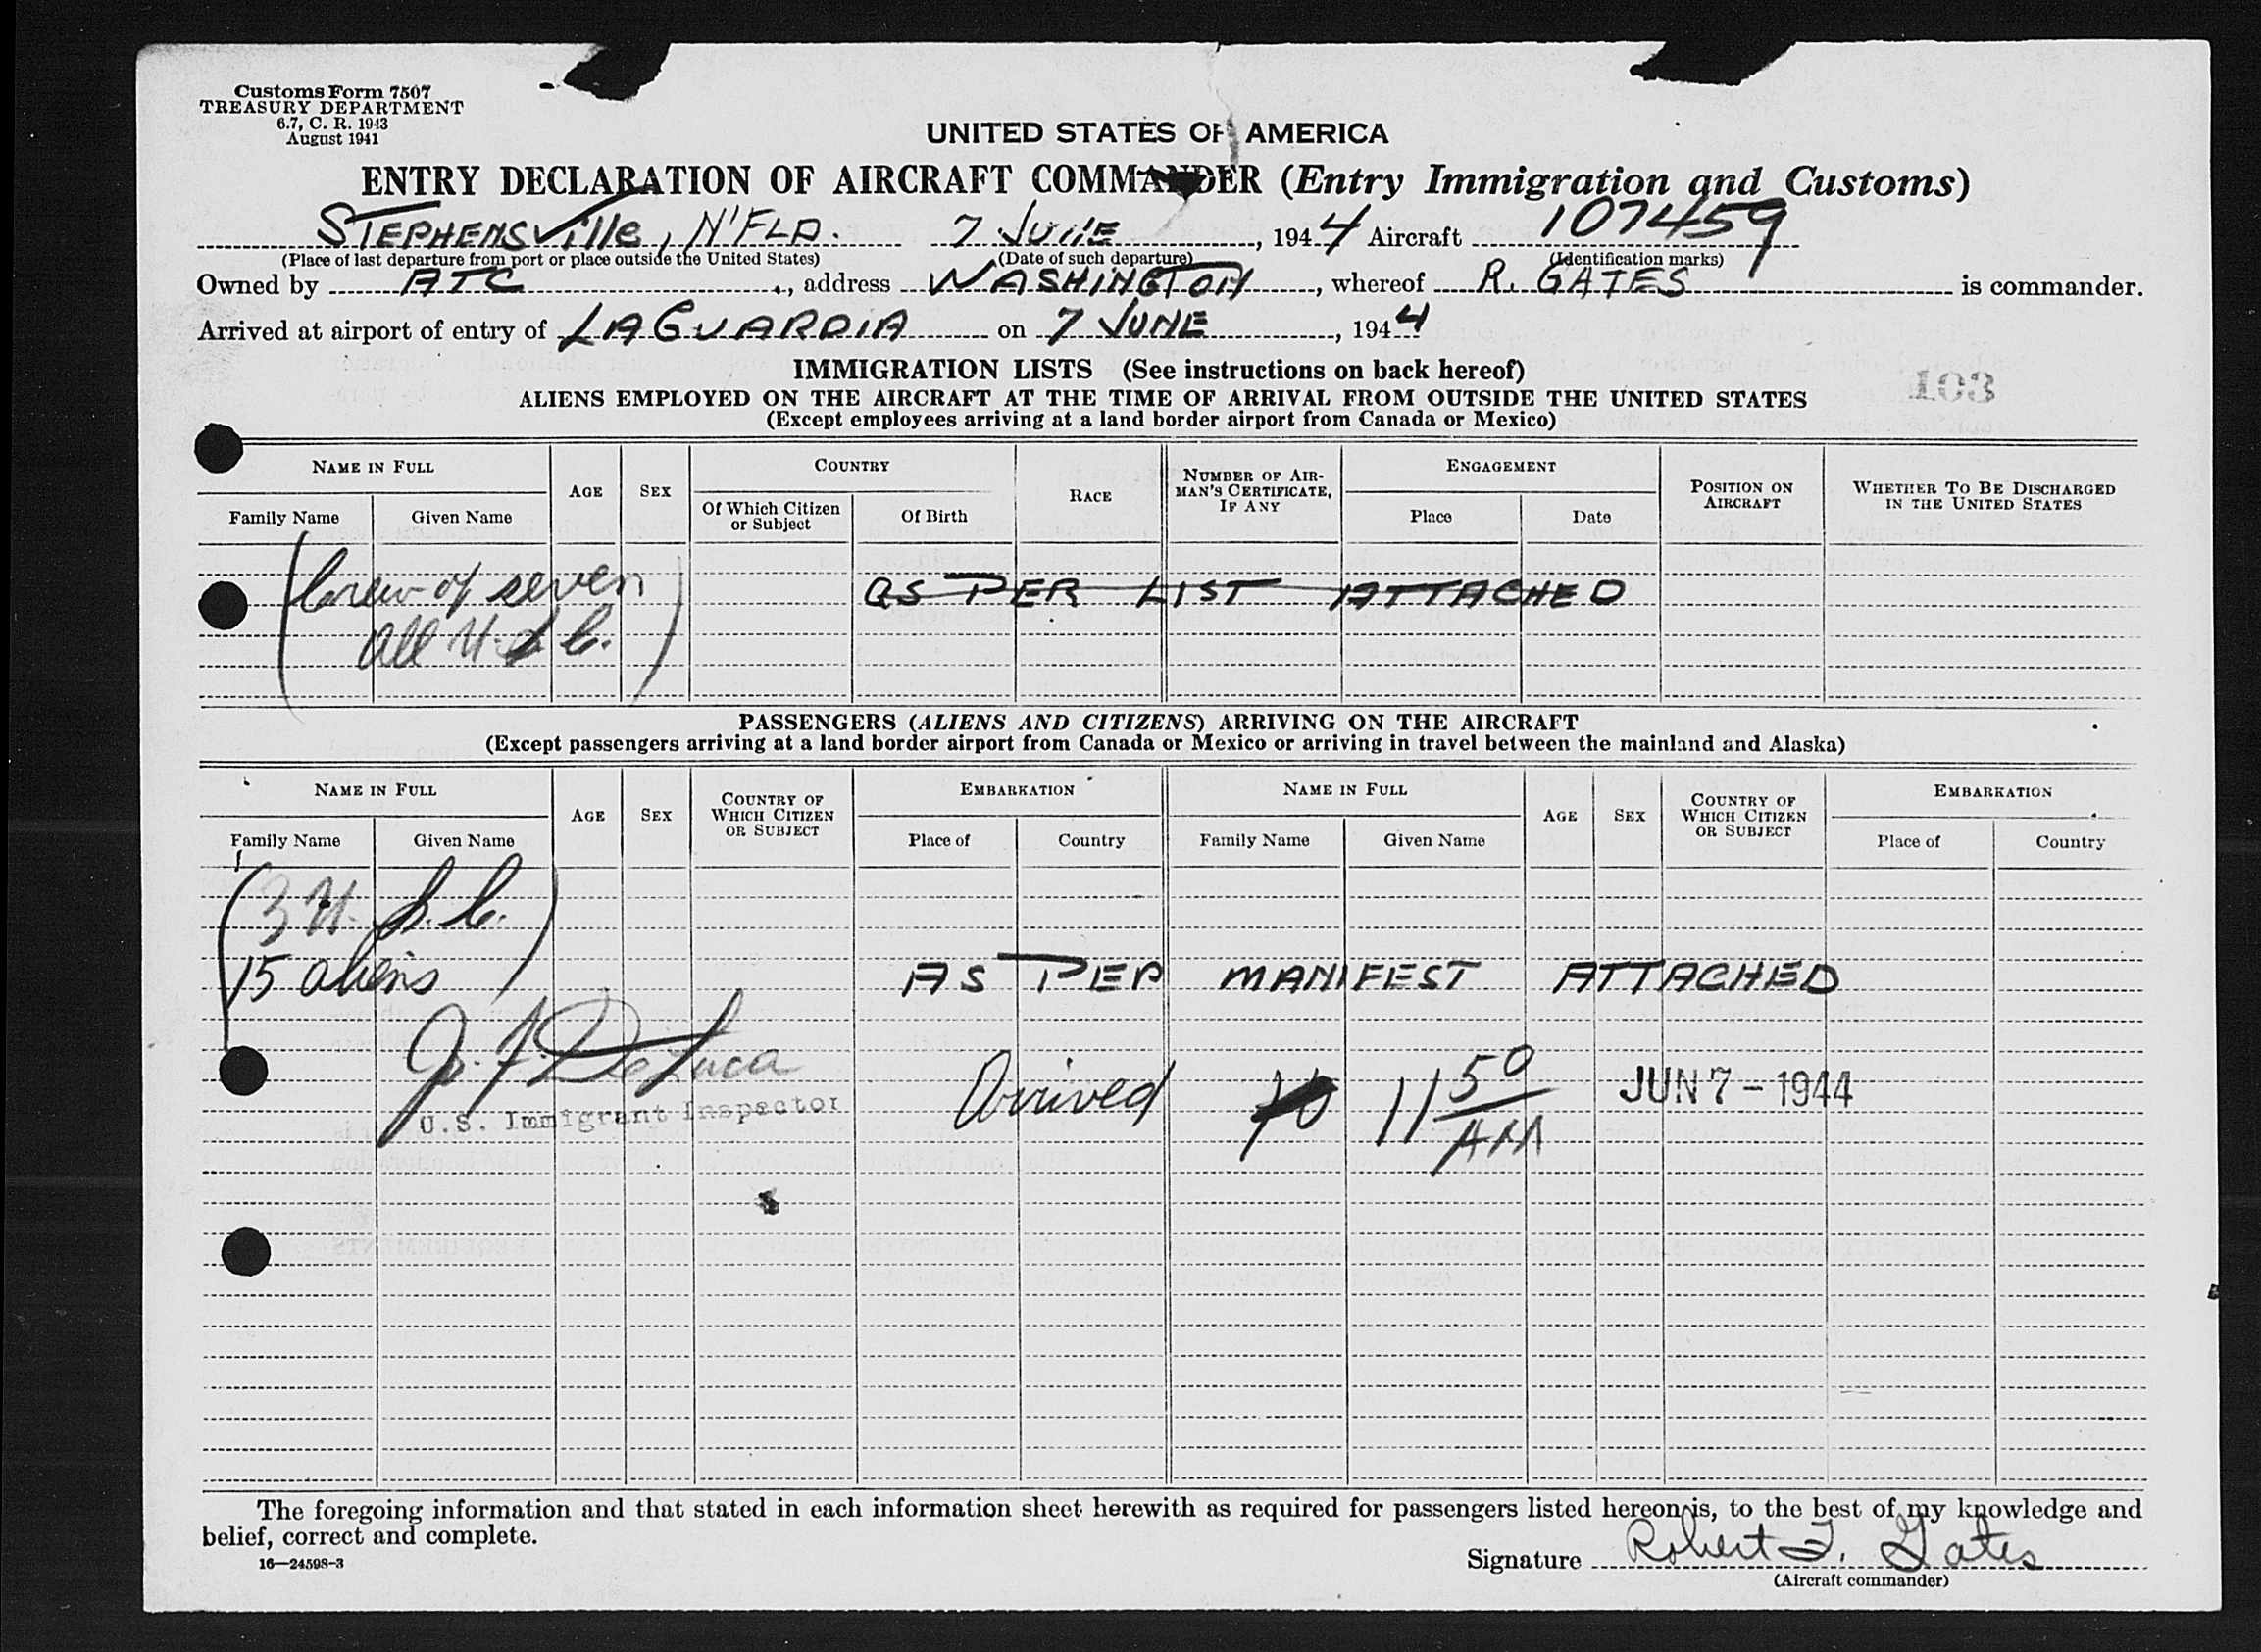 Customs Form 7507
TREASURY DEPARTMENT
6.7, C. R. 1943
August 1941
UNITED STATES OF AMERICA
ENTRY DECLARATION OF AIRCRAFT COMMANDER (Entry Immigration and Customs)
STEPHENSville, N'FLD. 7 JUNE, 1944 Aircraft 107459
(Place of last departure from port or place outside the United States) (Date of such departure) (Identification marks)
Owned by ATC, address WASHINGTON, whereof R. GATES is commander.
Arrived at airport of entry of LAGUARDIA on 7 JUNE, 1944
IMMIGRATION LISTS (See instructions on back hereof)
103
ALIENS EMPLOYED ON THE AIRCRAFT AT THE TIME OF ARRIVAL FROM OUTSIDE THE UNITED STATES
(Except employees arriving at a land border airport from Canada or Mexico)
NAME IN FULL AGE SEX COUNTRY RACE NUMBER OF AIRMAN'S CERTIFICATE, IF ANY ENGAGEMENT POSITION ON AIRCRAFT WHETHER TO BE DISCHARGED IN THE UNITED STATES
Family Name Given Name Of Which Citizen or Subject Of Birth Place Date
(Crew of seven AS PER LIST ATTACHED
All U.S.C.)
PASSENGERS (ALIENS AND CITIZENS) ARRIVING ON THE AIRCRAFT
(Except passengers arriving at a land border airport from Canada or Mexico or arriving in travel between the mainland and Alaska)
NAME IN FULL AGE SEX COUNTRY OF WHICH CITIZEN OR SUBJECT EMBARKATION NAME IN FULL AGE SEX COUNTRY OF WHICH CITIZEN OR SUBJECT EMBARKATION
Family Name Given Name Place of Country Family Name Given Name Place of Country
(3 U.S.C.)
15 aliens AS PER MANIFEST ATTACHED
J. F. DeLuca Arrived 11 50 AM JUN 7 - 1944
U.S. Immigrant Inspector
The foregoing information and that stated in each information sheet herewith as required for passengers listed hereon is, to the best of my knowledge and
belief, correct and complete.
16—24598-3
Signature Robert F. Gates
(Aircraft commander)